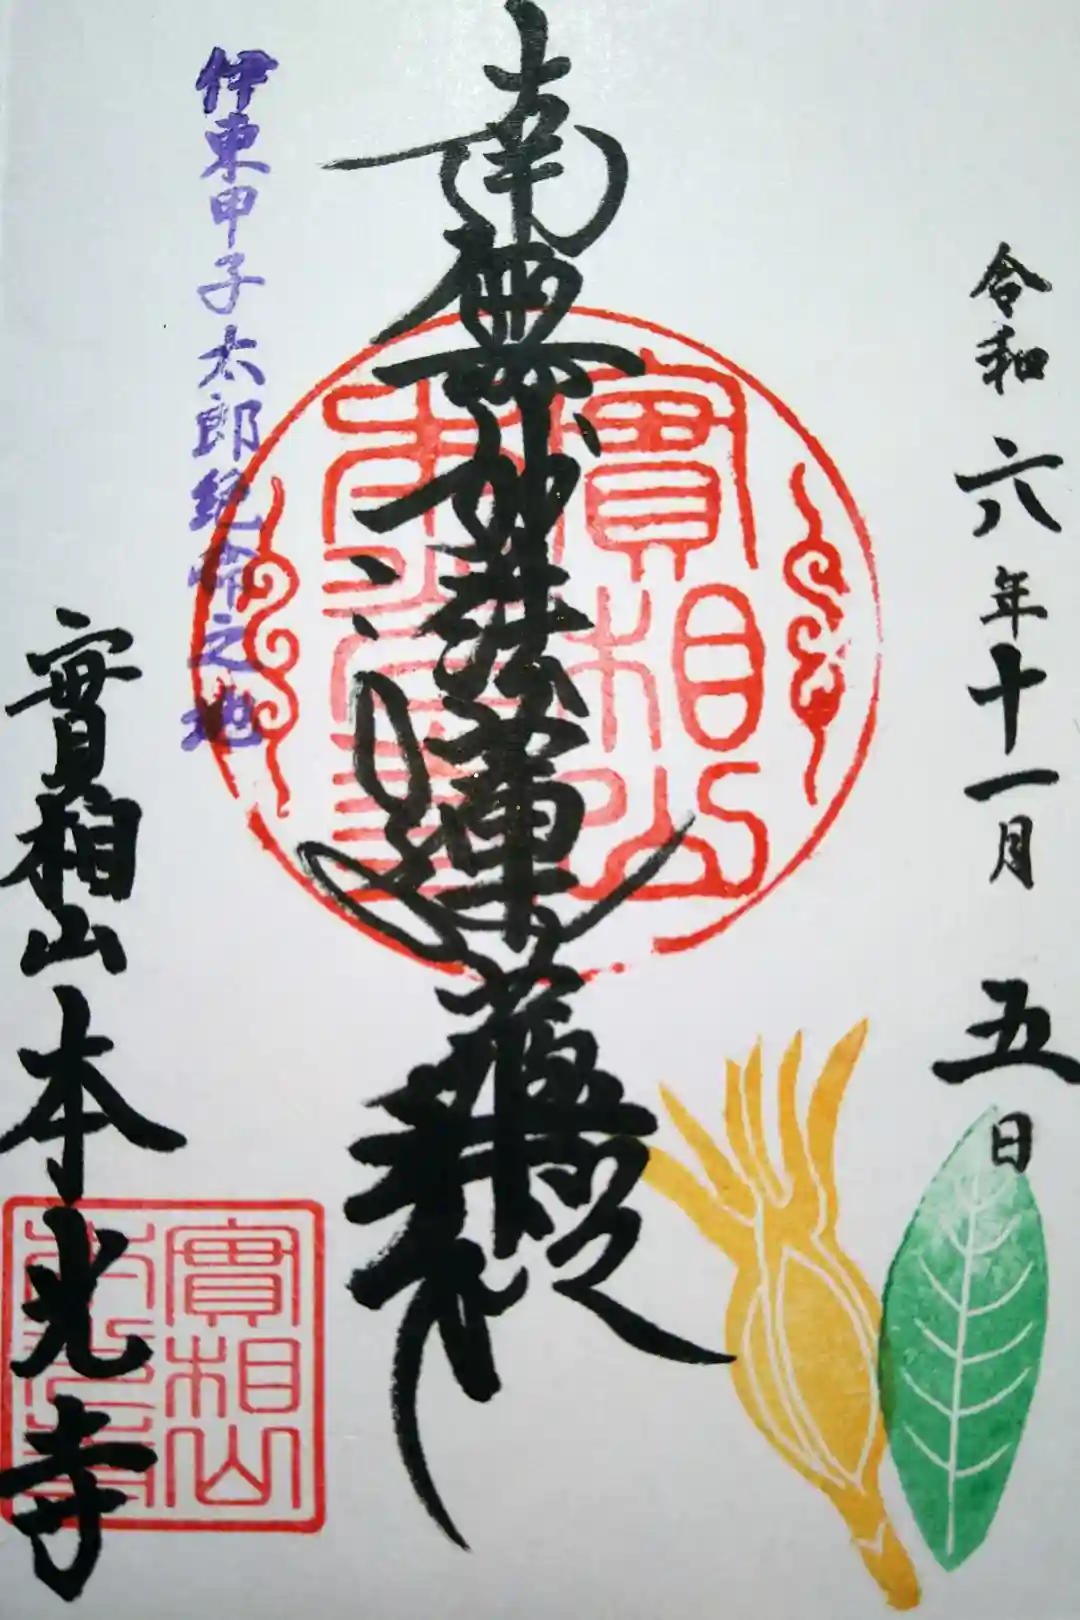 令和六年十一月五日
南無妙法蓮華経
伊東甲子太郎絶命之地
實相山本光寺
實相山
本光寺
實相山
本光寺